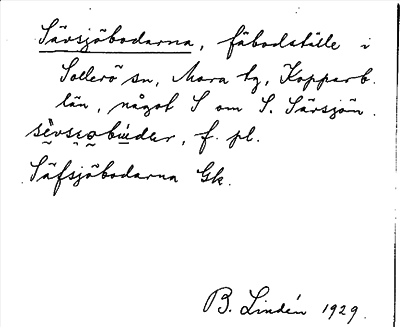 Sävsjöbodarna, fäbodställe i
Sollerö sn, Mora tg, Kopparb.
län, något S om S. Särsjön.
sèvsɩo̯bu̇dər, f. pl.
Säfsjöbodarna Gk.
B. Lindén 1929.